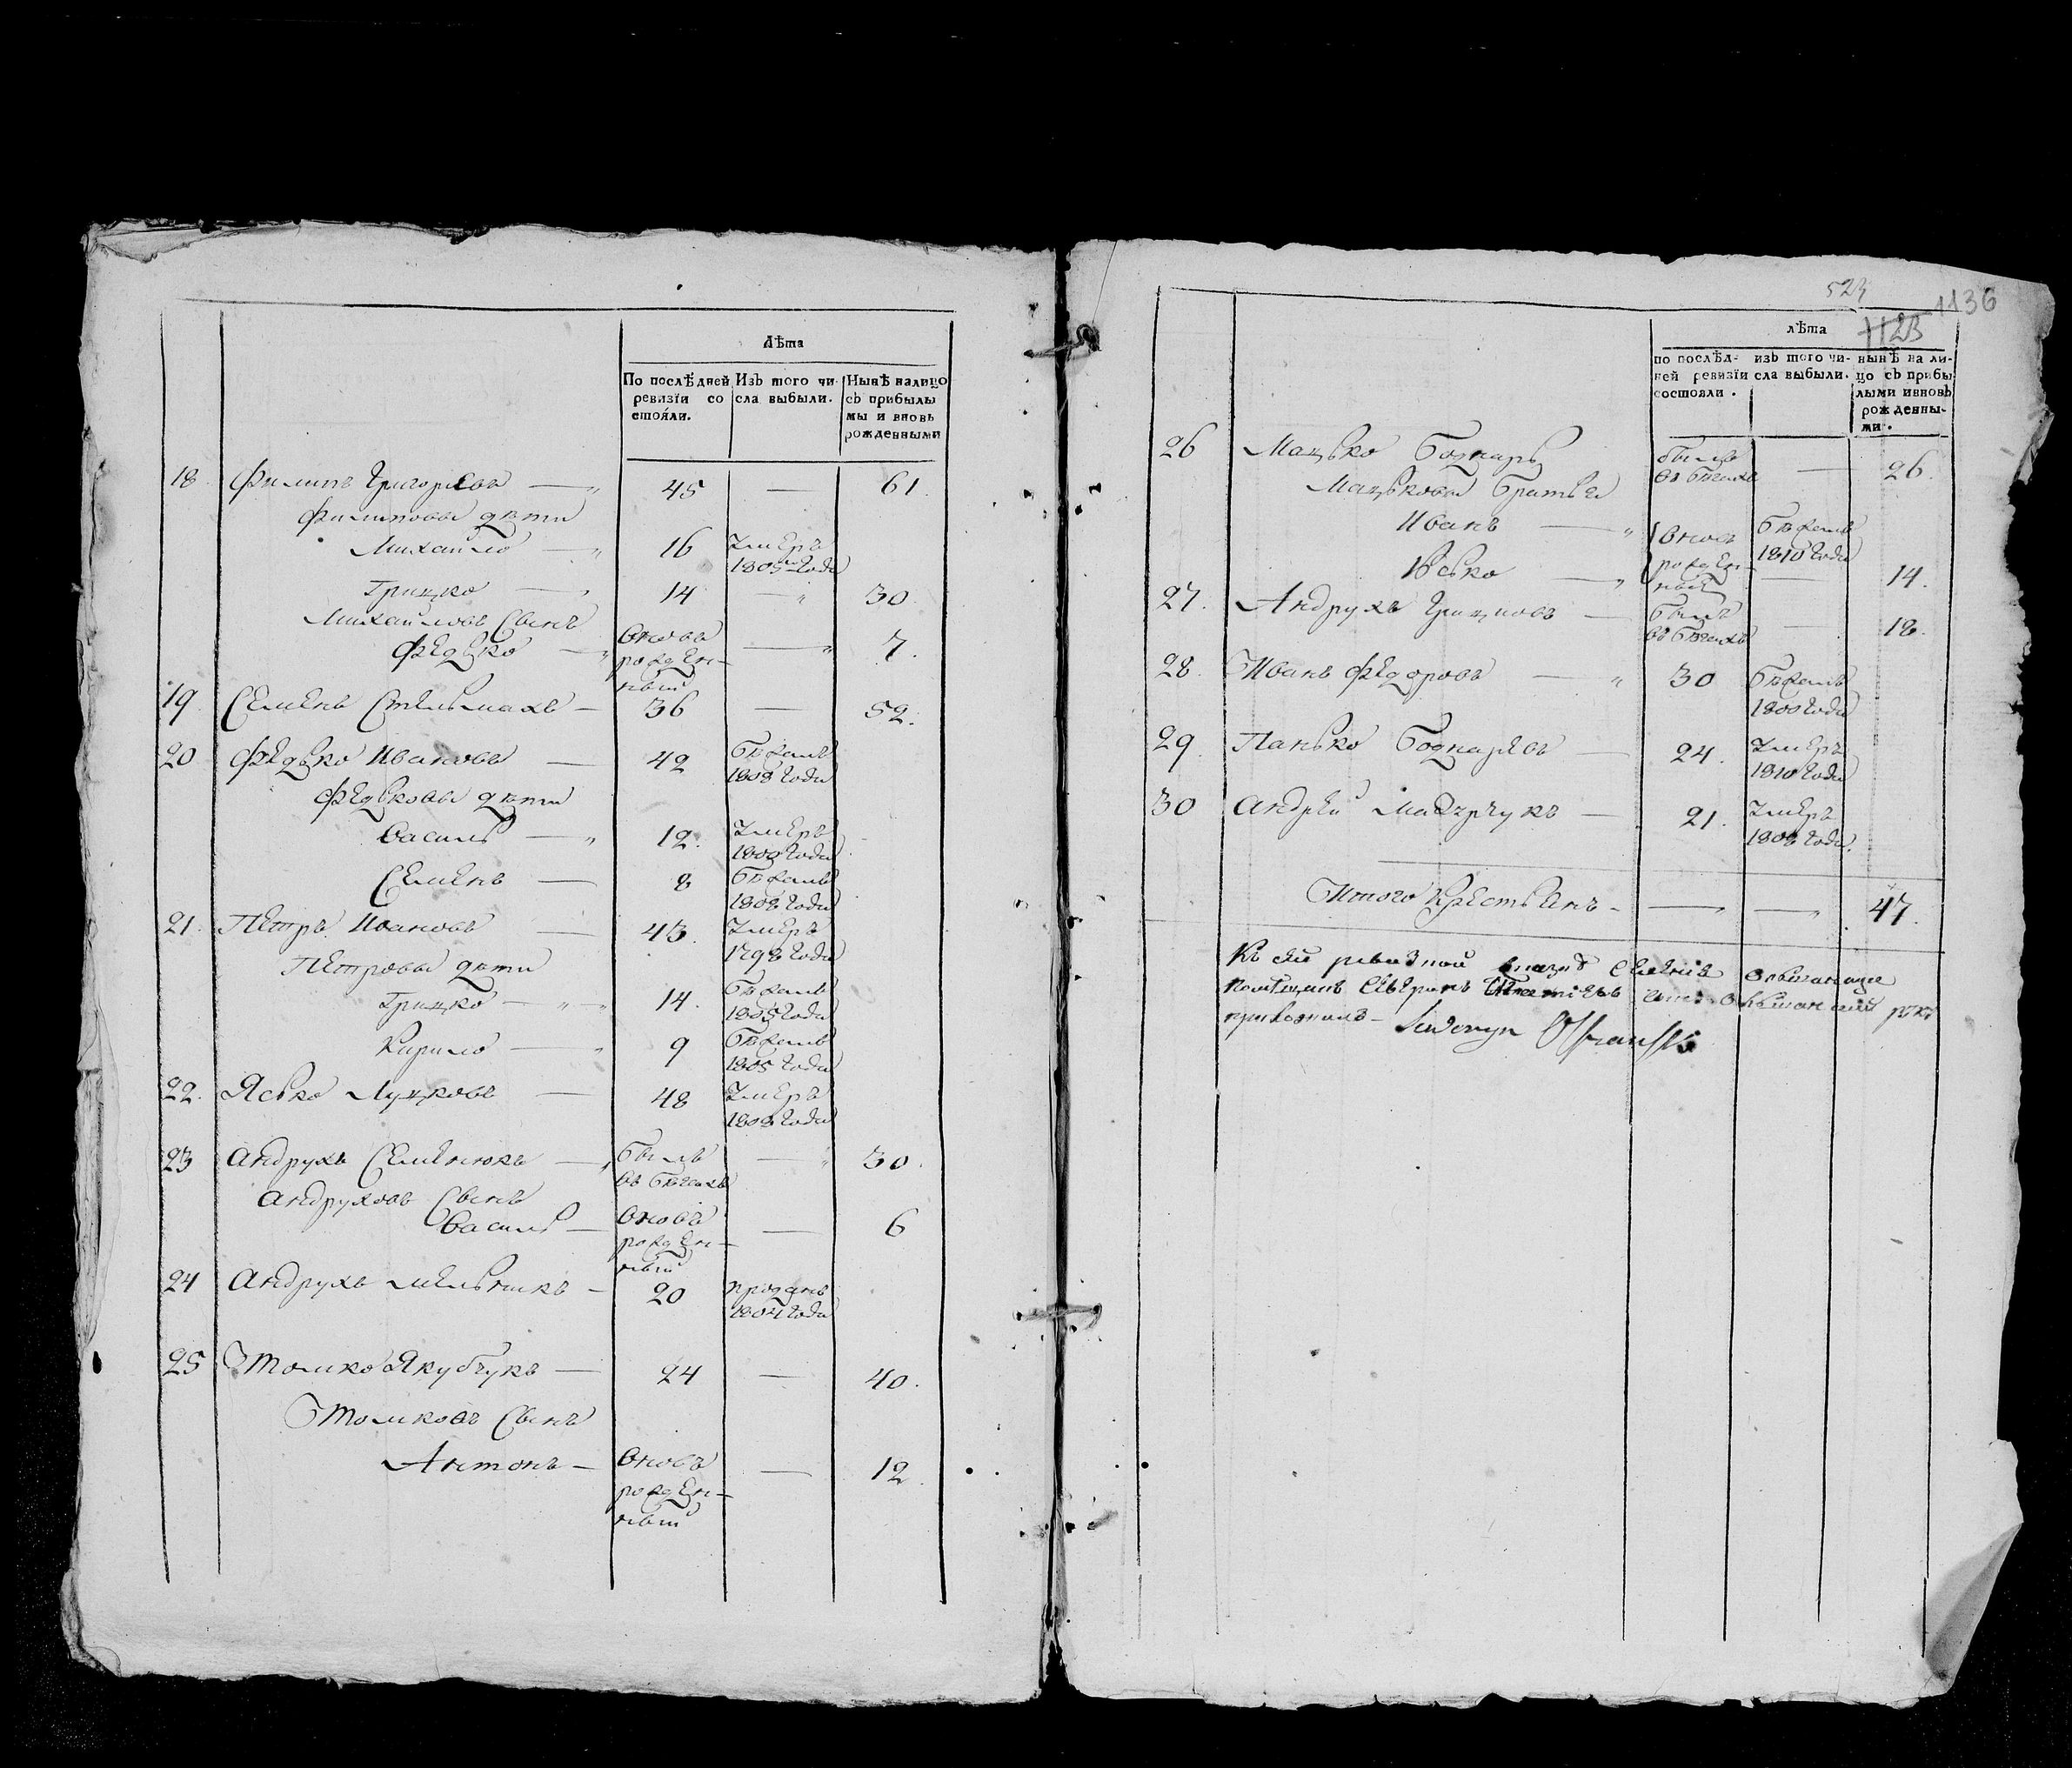 Лѣта
По послѣдней ревизїи состояли.
Изъ того числа выбыли.
Нынѣ налицо съ прибылыми и вновь рожденными
18. Филипъ Григорѣевъ — 45 — 61.
Филиповы дѣти
Михайло — 16 Умеръ 1805 года
Грицко — 14 — 30
Михайловъ Сынъ
Федько — вновь рожденный — 7.
19. Семенъ Стельмахъ — 36 — 52.
20 Федько Ивановъ — 42 бѣжалъ 1808 года
Федьковы дѣти
Василь — 12. Умеръ 1809 года
Семенъ — 8 бѣжалъ 1808 года
21. Петръ Ивановъ — 43. Умеръ 1798 года
Петровы дѣти
Грицко — 14. бѣжалъ 1805 года
Кирило — 9 бѣжалъ 1805 года
22. Ясько Луцковъ — 48 Умеръ 1808 года
23 Андрухъ Семенюкъ — былъ въ бѣгахъ — 30.
Андруховъ Сынъ
Василь — вновь рожденный — 6
24 Андрухъ Мельникъ — 20 проданъ 1804 года
25 Томко Якубчукъ — 24 — 40.
Томковъ Сынъ
Антонъ — вновь рожденный — 12
523
1136
1123
лѣта
по послѣдней ревизїи состояли.
изъ того числа выбыли.
нынѣ на лицо съ прибылыми и вновь рожденными.
26 Мацько Боднарь былъ въ бѣгахъ — 26.
Мацьковы братья
Иванъ — вновь рожденный бѣжалъ 1810 года
Юсько — 14.
27. Андрухъ Грицковъ — былъ въ бѣгахъ — 18.
28. Иванъ Федоровъ — 30 бѣжалъ 1800 года
29. Панько Боднаревъ — 24. Умеръ 1810 года
30 Андрей Мазурчукъ — 21. Умеръ 1808 года.
Итого крестьянъ — — — 47.
Къ сей ревизной
помѣщикъ Северинъ
приложилъ — Seweryn